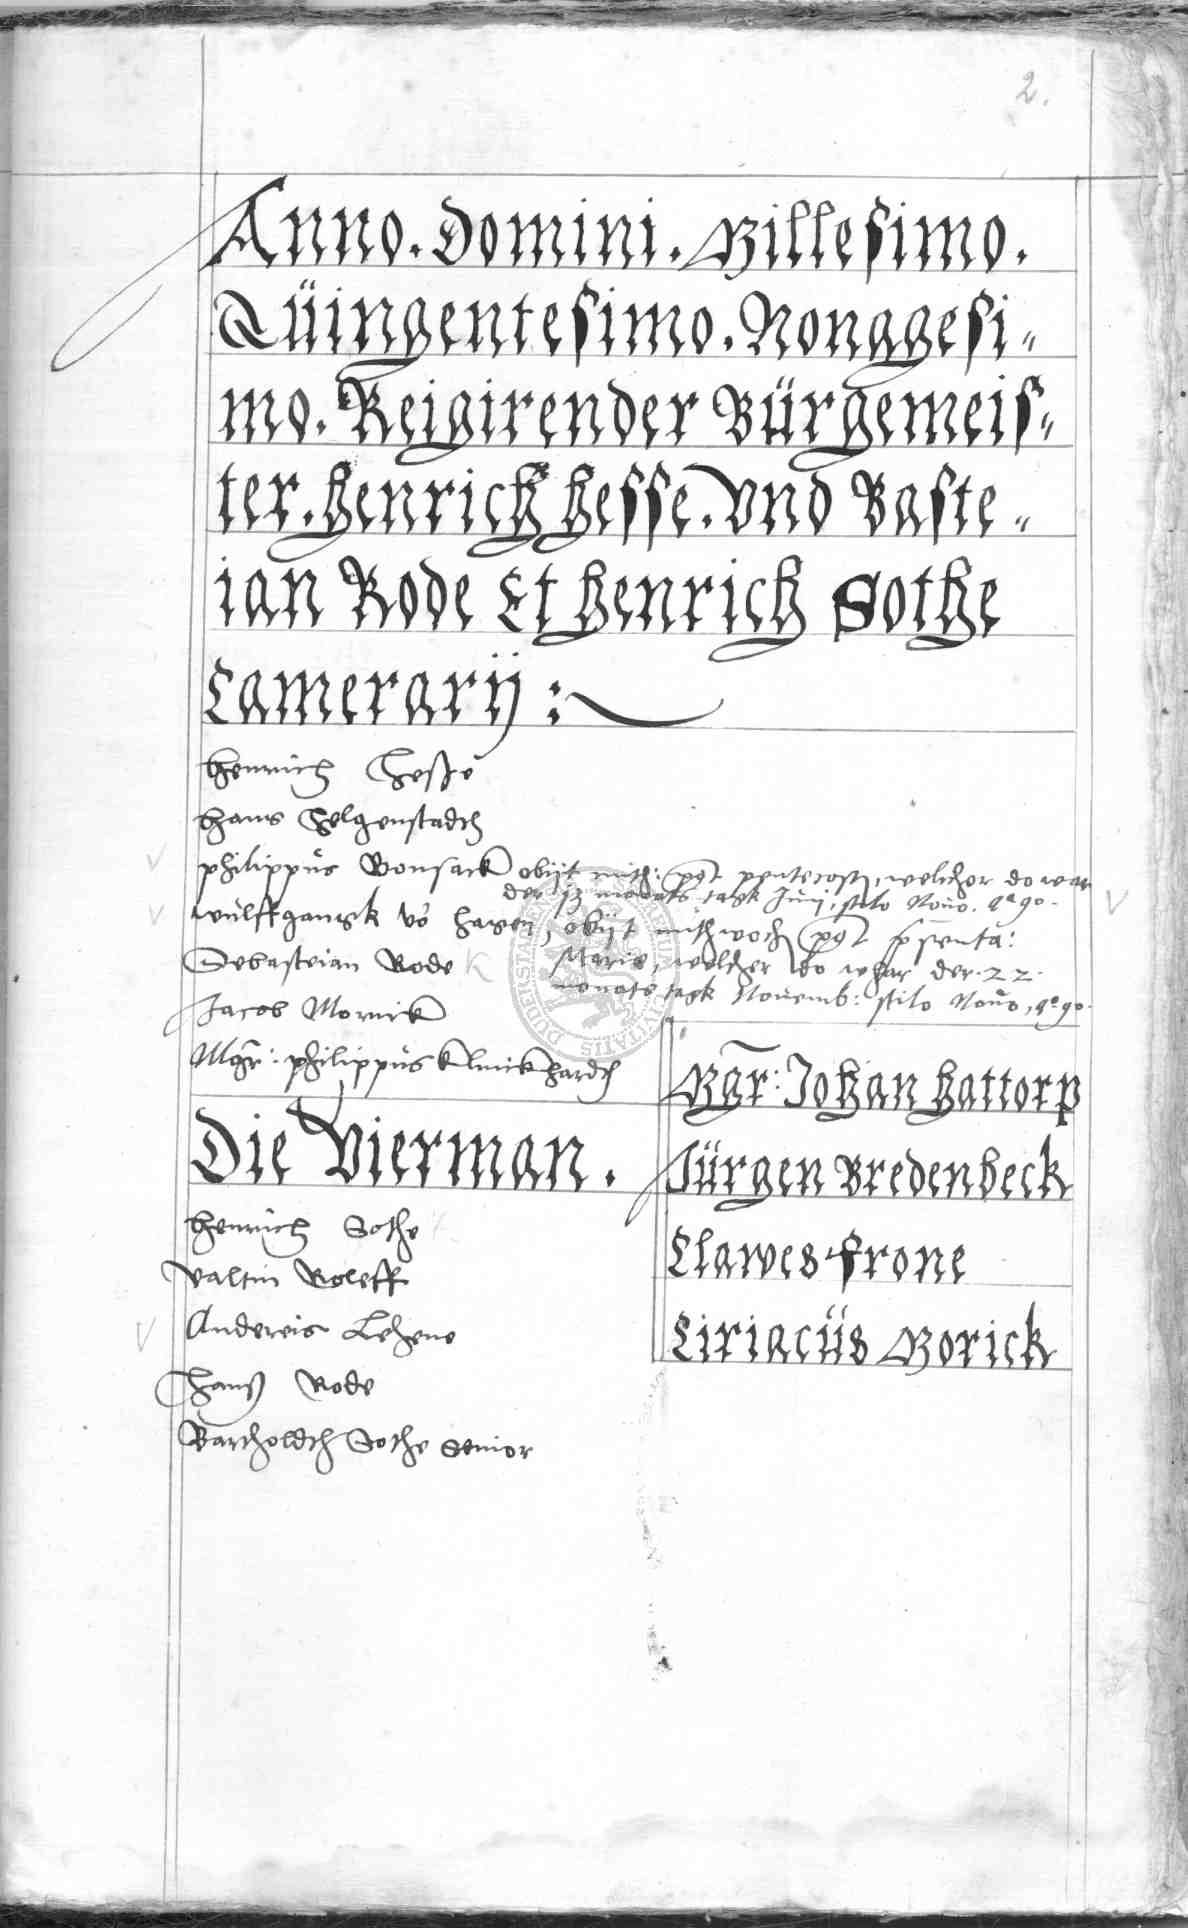 2.
Anno. Domini. Millesimo.
Qüingentesimo. Nonagesi„
mo. Reigirender Bürgemeis„
ter. Henrich Hesse. Vnd Baste„
ian Rode Et Henrich Sothe
Camerarij :
Henrich Hesse
Hans Helgenstadth
philippus Bonsack obijt mitt: post pentecost, welcher do war
der 13 monats tagk Junij, stilo Nouo. Ao 90.
wulffgangk vo Hagen, obijt mithwoch post psenta:
Marie, welcher do whar der. 22.
monats tagk Nouemb: stilo Nouo, Ao 90.
Sebasteian Rode
Jacob Mornick
Mgr: philippus Klinckhardth
Die Vierman.
Henrich Sothe
Valtin Roleff
Andereis Lehene
Hanß Rode
Bartholdth Sothe Senior
Mgr: Johan Hattorp
Jürgen Bredenbeck
Clawes Frone
Ciriacüs Morick
DUDERSTADT CIVITATIS